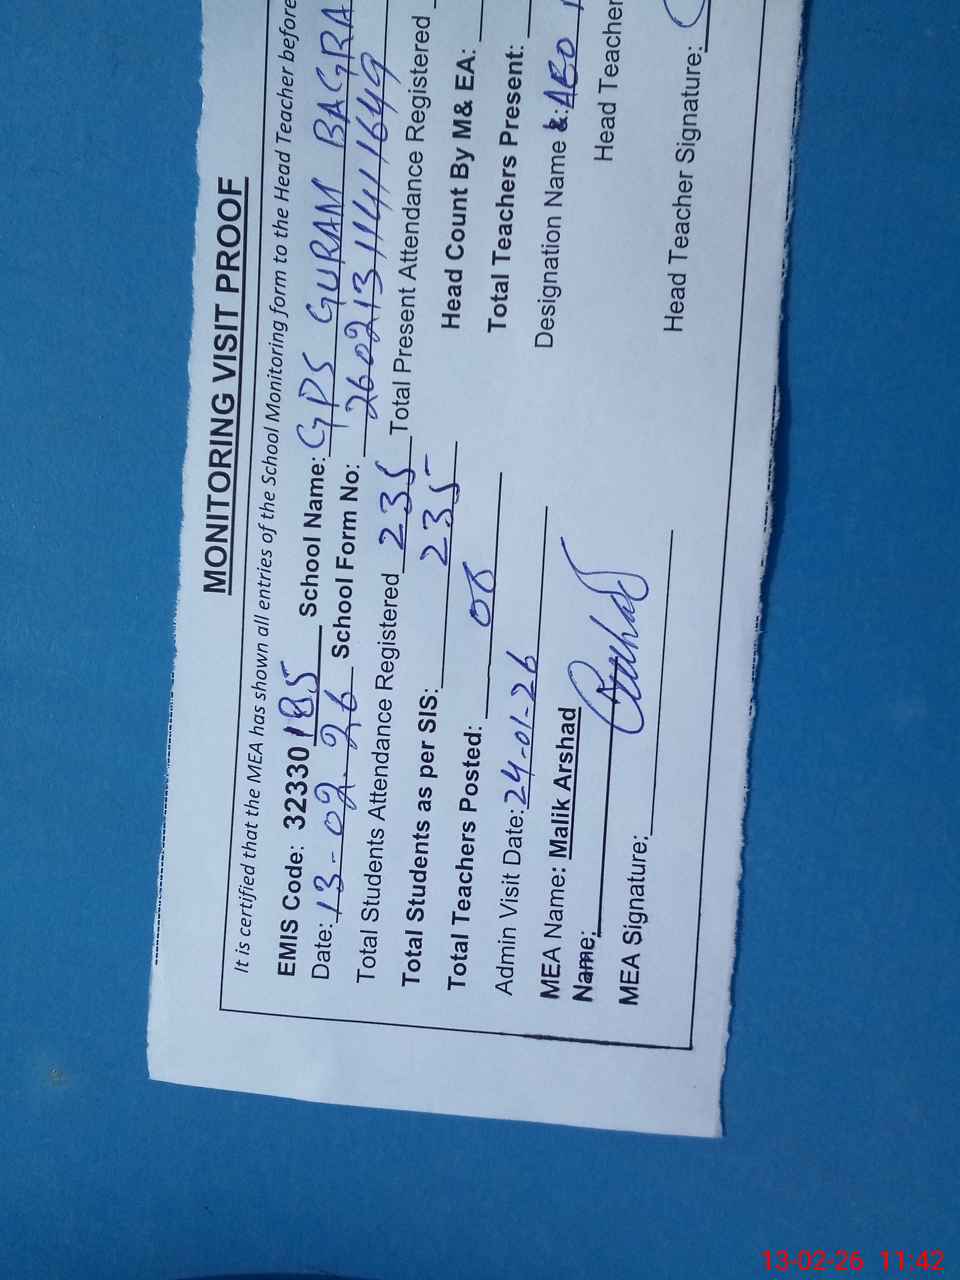 MONITORING VISIT PROOF
It is certified that the MEA has shown all entries of the School Monitoring form to the Head Teacher before
EMIS Code: 32330185 School Name: GPS GURAM BAGRA
Date: 13-02-26 School Form No: 26021311411649
Total Students Attendance Registered 235 Total Present Attendance Registered
Total Students as per SIS: 235 Head Count By M& EA:
Total Teachers Posted: 06 Total Teachers Present:
Admin Visit Date: 24-01-26 Designation Name &: AEO
MEA Name: Malik Arshad Head Teacher
Name:
MEA Signature: Head Teacher Signature:
13-02-26 11:42